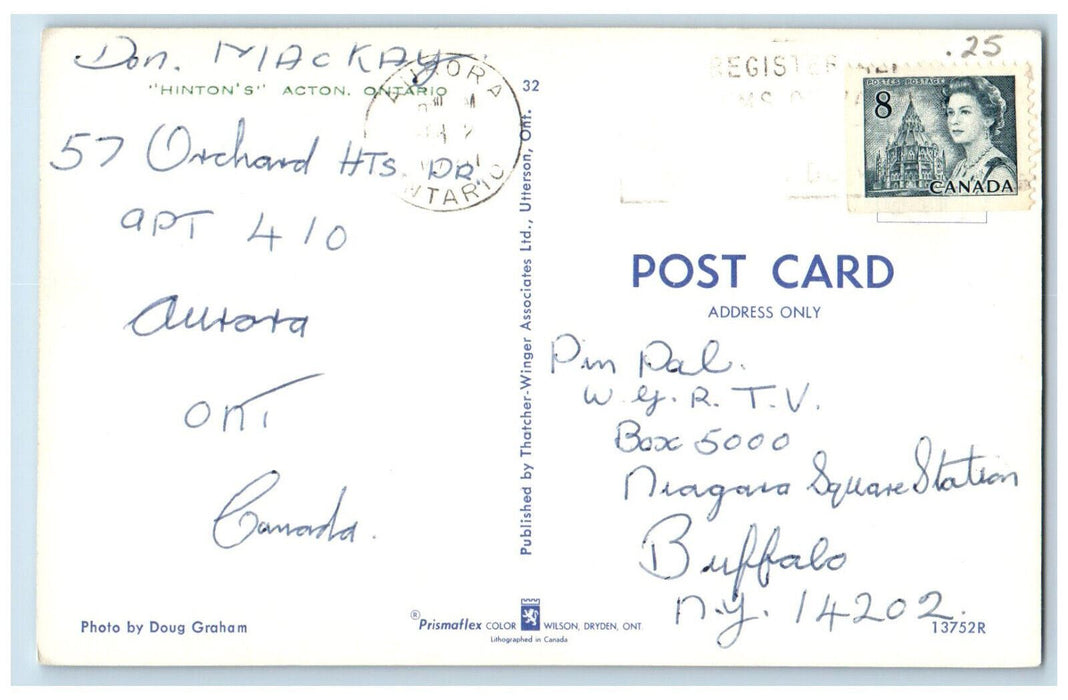 Don. MACKAY
"HINTON'S" ACTON, ONTARIO
57 Orchard HTS. DR
APT 410
Aurora
ONT
Canada.
Photo by Doug Graham
AURORA
ONTARIO
32
Published by Thatcher-Winger Associates Ltd., Utterson, Ont.
® Prismaflex COLOR WILSON, DRYDEN, ONT.
Lithographed in Canada
.25
REGISTER ALL
POSTES POSTAGE
8
CANADA
POST CARD
ADDRESS ONLY
Pin Pal.
W.G.R. T.V.
Box 5000
Niagara Square Station
Buffalo
N.Y. 14202.
13752R